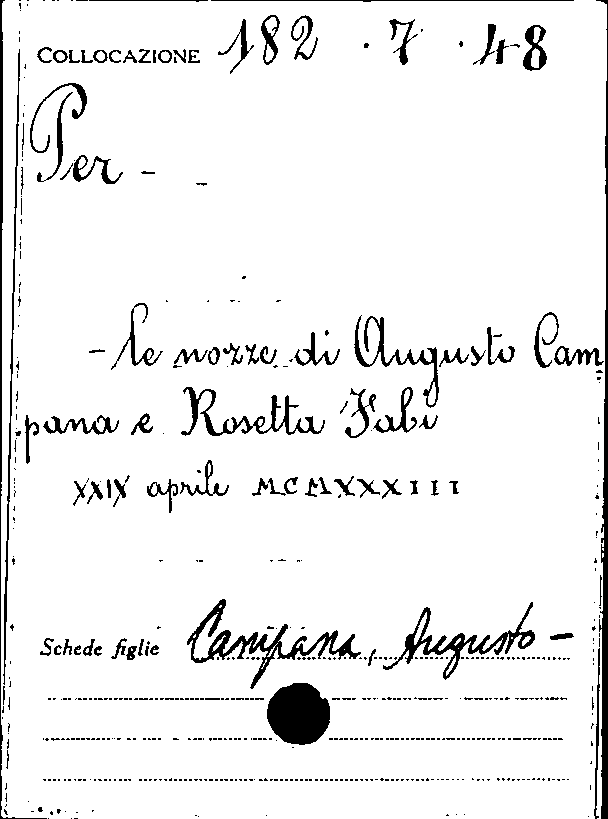 COLLOCAZIONE 182 . 7 . 48
Per -
- le nozze di Augusto Cam=
pana e Rosetta Fabi
XXIX aprile MCMXXXIII
Schede figlie Campana, Augusto -